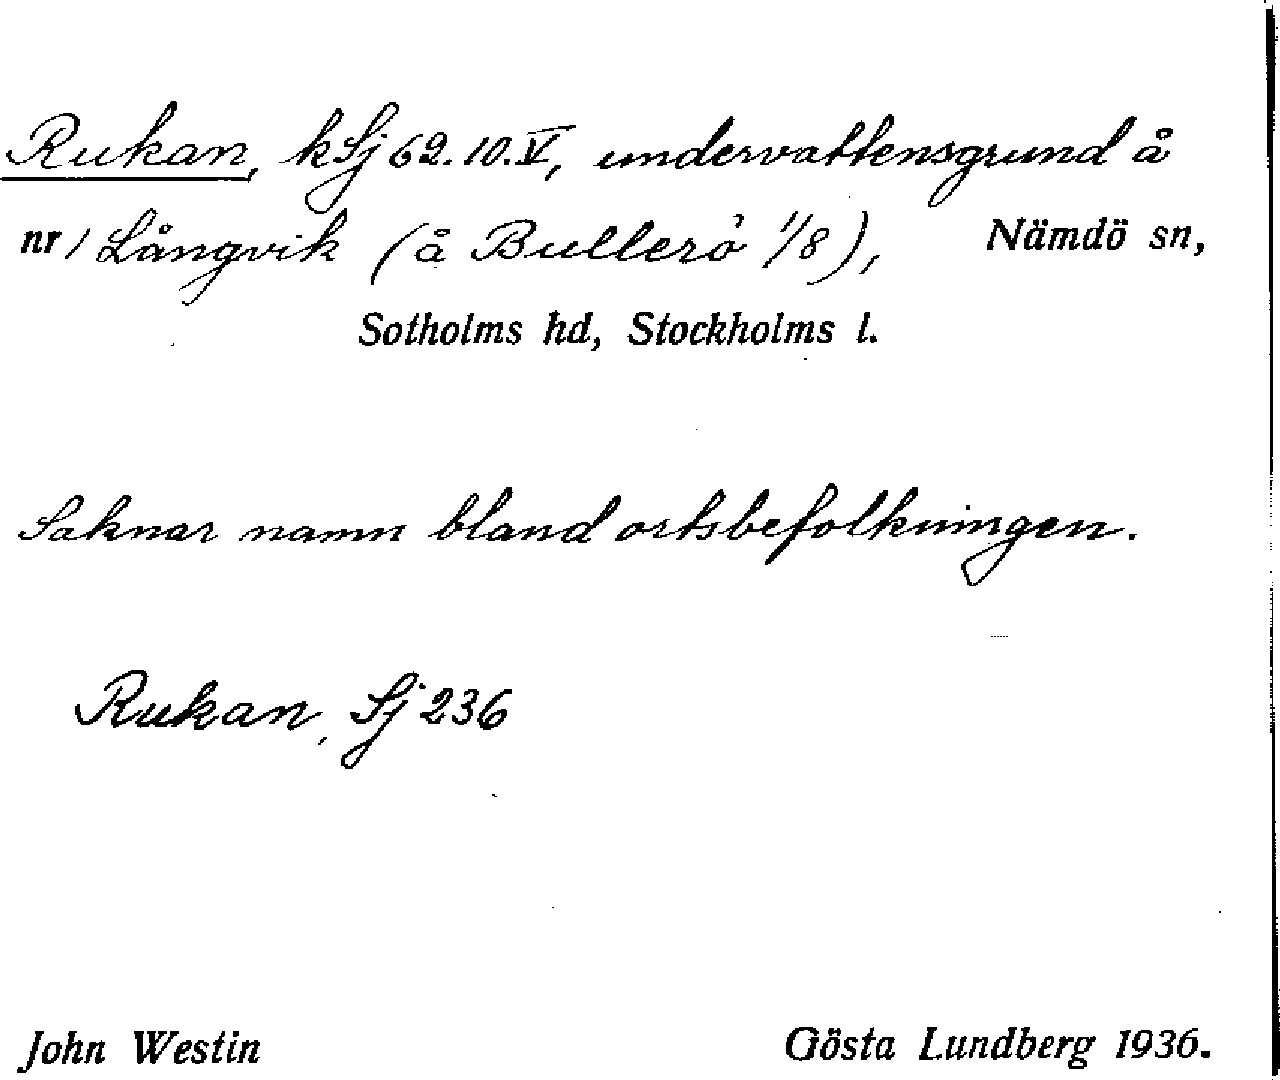 Rukan, kSj 62.10.V, undervattensgrund å
nr 1 Långvik (å Bullerö 1/8), Nämdö sn,
Sotholms hd, Stockholms l.
Saknar namn bland ortsbefolkningen.
Rukan, Sj 236
John Westin Gösta Lundberg 1936.